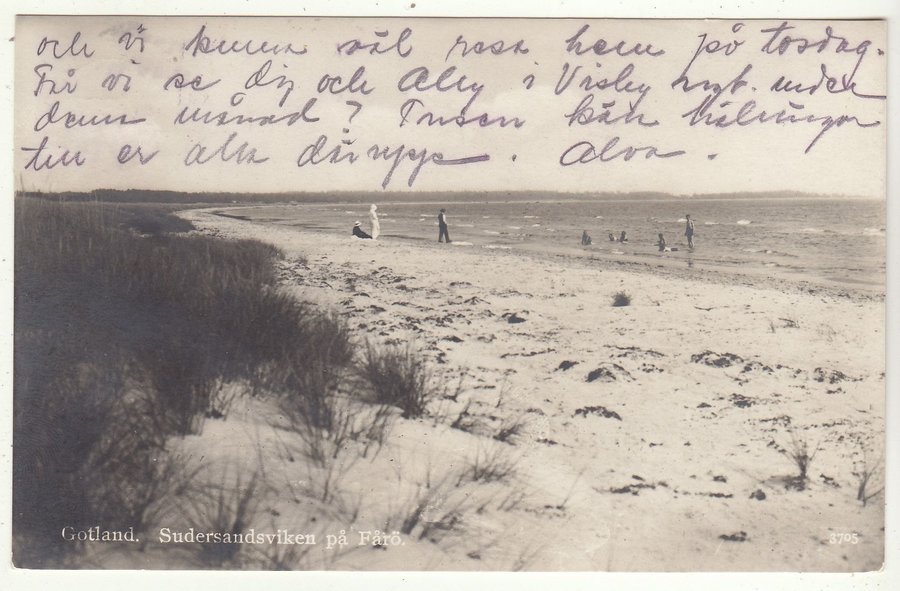 och vi kunna väl resa hem på torsdag.
Få vi se Dig och Alby i Visby nyt. under
denna månad? Tusen kära hälsningar
till er alla däruppe. Alva.
Gotland. Sudersandsviken på Fårö.
3705